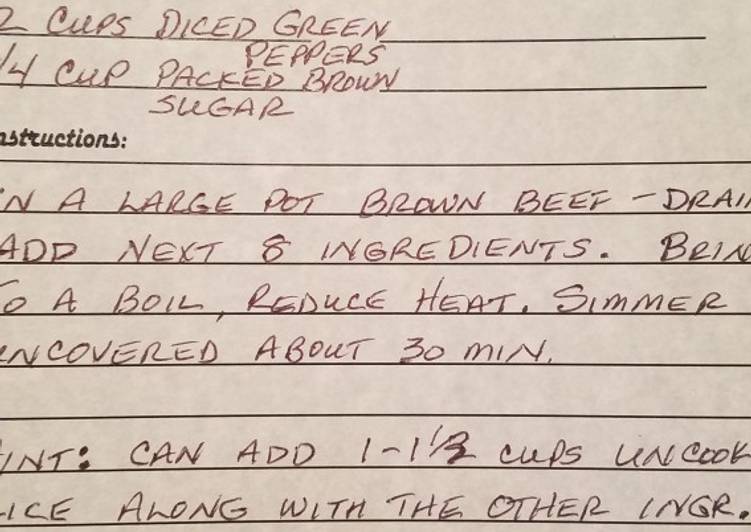 2 CUPS DICED GREEN
PEPPERS
1/4 CUP PACKED BROWN
SUGAR
nstructions:
IN A LARGE POT BROWN BEEF - DRAIN
ADD NEXT 8 INGREDIENTS. BRING
TO A BOIL, REDUCE HEAT. SIMMER
UNCOVERED ABOUT 30 MIN.
HINT: CAN ADD 1-1 1/2 CUPS UNCOOK
RICE ALONG WITH THE OTHER INGR.